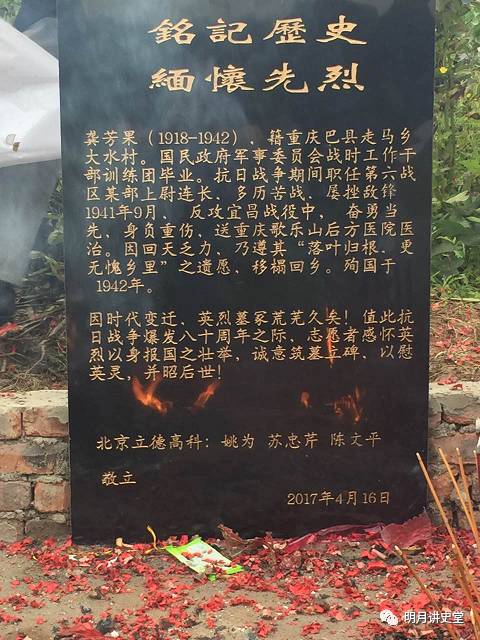 銘記歷史
緬懷先烈
龚芳果(1918-1942)、籍重庆巴县走马乡
大水村。国民政府军事委员会战时工作干
部训练团毕业。抗日战争期间职任第六战
区某部上尉连长，多历苦战、屡挫敌锋
1941年9月，反攻宜昌战役中，奋勇当
先，身负重伤、送重庆歌乐山后方医院医
治。因回天乏力，乃遵其“落叶归根、更
无愧乡里”之遗愿，移榻回乡。殉国于
1942年。
因时代变迁、英烈墓冢荒芜久矣！值此抗
日战争爆发八十周年之际，志愿者感怀英
烈以身报国之壮举，诚意筑墓立碑、以慰
英灵，并昭后世！
北京立德高科：姚为 苏忠芹 陈文平
敬立
2017年4月16日
明月讲史堂